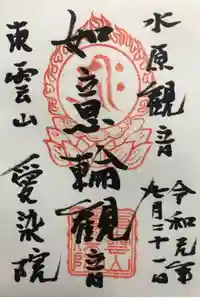 水原観音
令和元年
九月二十一日
如意輪観音
東雲山
愛染院